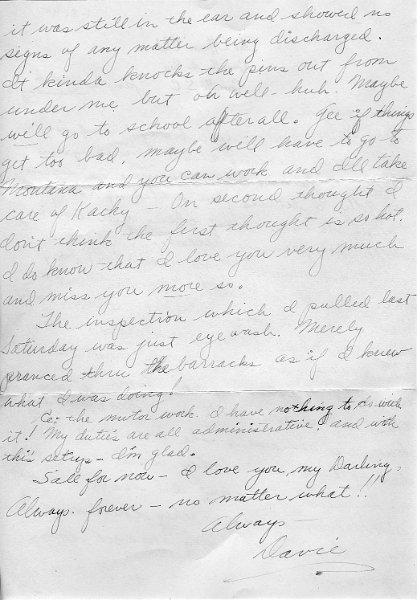 it was still in the ear and showed no
signs of any matter being discharged.
It kinda knocks the pins out from
under me but oh well - huh. Maybe
we'll go to school after all. Gee if things
get too bad, maybe will have to go to
Montana and you can work and I'll take
care of Kachy - On second thought I
don't think the first thought is so hot.
I do know that I love you very much
and miss you more so.
The inspection which I pulled last
Saturday was just eyewash. Merely
pranced thru the barracks as if I knew
what I was doing!
the motor work. I have nothing to do with
it! My duties are all administrative, and with
this setup - I'm glad.
for now - I love you, my Darling,
Always. forever - no matter what!!
Always -
Davie